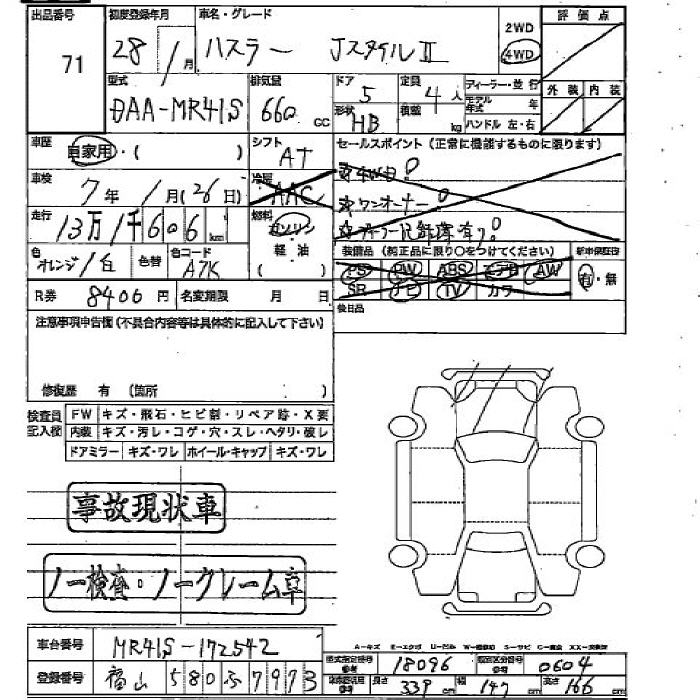 出品番号
71
初度登録年月
28年1月
車名・グレード
ハスラー JスタイルⅡ
2WD
4WD
評価点
型式
DAA-MR41S
排気量
660 cc
ドア
5
形状
HB
定員
4人
積載
kg
ディーラー・並行
モデル年式 年
ハンドル 左・右
外装 内装
車歴
自家用・( )
シフト
AT
セールスポイント (正常に機能するものに限ります)
車検
7年1月(26日)
冷房
AAC
☆4WD!
☆ワンオーナー!
走行
13万1千606km
燃料
ガソリン
軽・油
( )
色
オレンジ/白
色替
色コード
A7K
装備品 (純正品に限り○をつけてください)
PS PW ABS エアB AW
SR ナビ TV カワ
新車保証書
有・無
R券 8406円
名変期限 月 日
後日品
注意事項申告欄 (不具合内容等は具体的に記入して下さい)
修復歴 有 (箇所 )
検査員記入欄
FW キズ・飛石・ヒビ割・リペア跡・X要
内装 キズ・汚レ・コゲ・穴・スレ・ヘタリ・破レ
ドアミラー キズ・ワレ ホイール・キャップ キズ・ワレ
事故現状車
ノー検査・ノークレーム車
車台番号
MR41S-172542
登録番号
福山 580ふ7973
型式指定番号
18096
類別区分番号
0604
長さ 339cm 幅 147cm 高さ 166cm